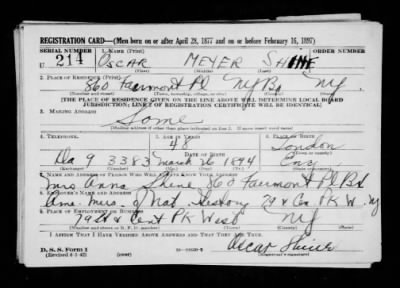 REGISTRATION CARD—(Men born on or after April 28, 1877 and on or before February 16, 1897)
SERIAL NUMBER 1. NAME (Print) ORDER NUMBER
U 214 OSCAR MEYER SHINE
2. PLACE OF RESIDENCE (Print)
860 Fairmont Pl NY Bx NY
[THE PLACE OF RESIDENCE GIVEN ON THE LINE ABOVE WILL DETERMINE LOCAL BOARD
JURISDICTION; LINE 2 OF REGISTRATION CERTIFICATE WILL BE IDENTICAL]
3. MAILING ADDRESS
Same
[Mailing address if other than place indicated on line 2. If same insert word same]
4. TELEPHONE 5. AGE IN YEARS 6. PLACE OF BIRTH
48 London
DATE OF BIRTH
Da 9 3383 March 26 1894 Eng
7. NAME AND ADDRESS OF PERSON WHO WILL ALWAYS KNOW YOUR ADDRESS
Mrs Anna Shine 860 Fairmont Pl Bx
8. EMPLOYER'S NAME AND ADDRESS
Am. Mus. of Nat. History 79 & Cen PK W. NY
9. PLACE OF EMPLOYMENT OR BUSINESS
79 St & Cent PK West NY
I AFFIRM THAT I HAVE VERIFIED ABOVE ANSWERS AND THAT THEY ARE TRUE.
D. S. S. Form 1
(Revised 4-1-42) Oscar Shine